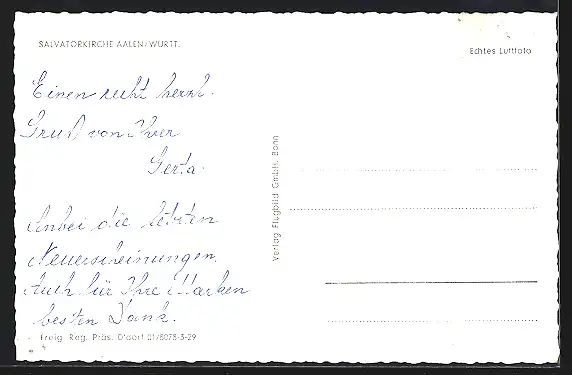 SALVATORKIRCHE AALEN/WÜRTT.
Echtes Luftfoto
Einen recht herzl.
Gruß von Ihrer
Gerta.
Anbei die letzten
Neuerscheinungen.
Auch für Ihre Marken
besten Dank.
Verlag Flugbild GmbH. Bonn
Freig. Reg. Präs. D'dorf 01/6075-3-29